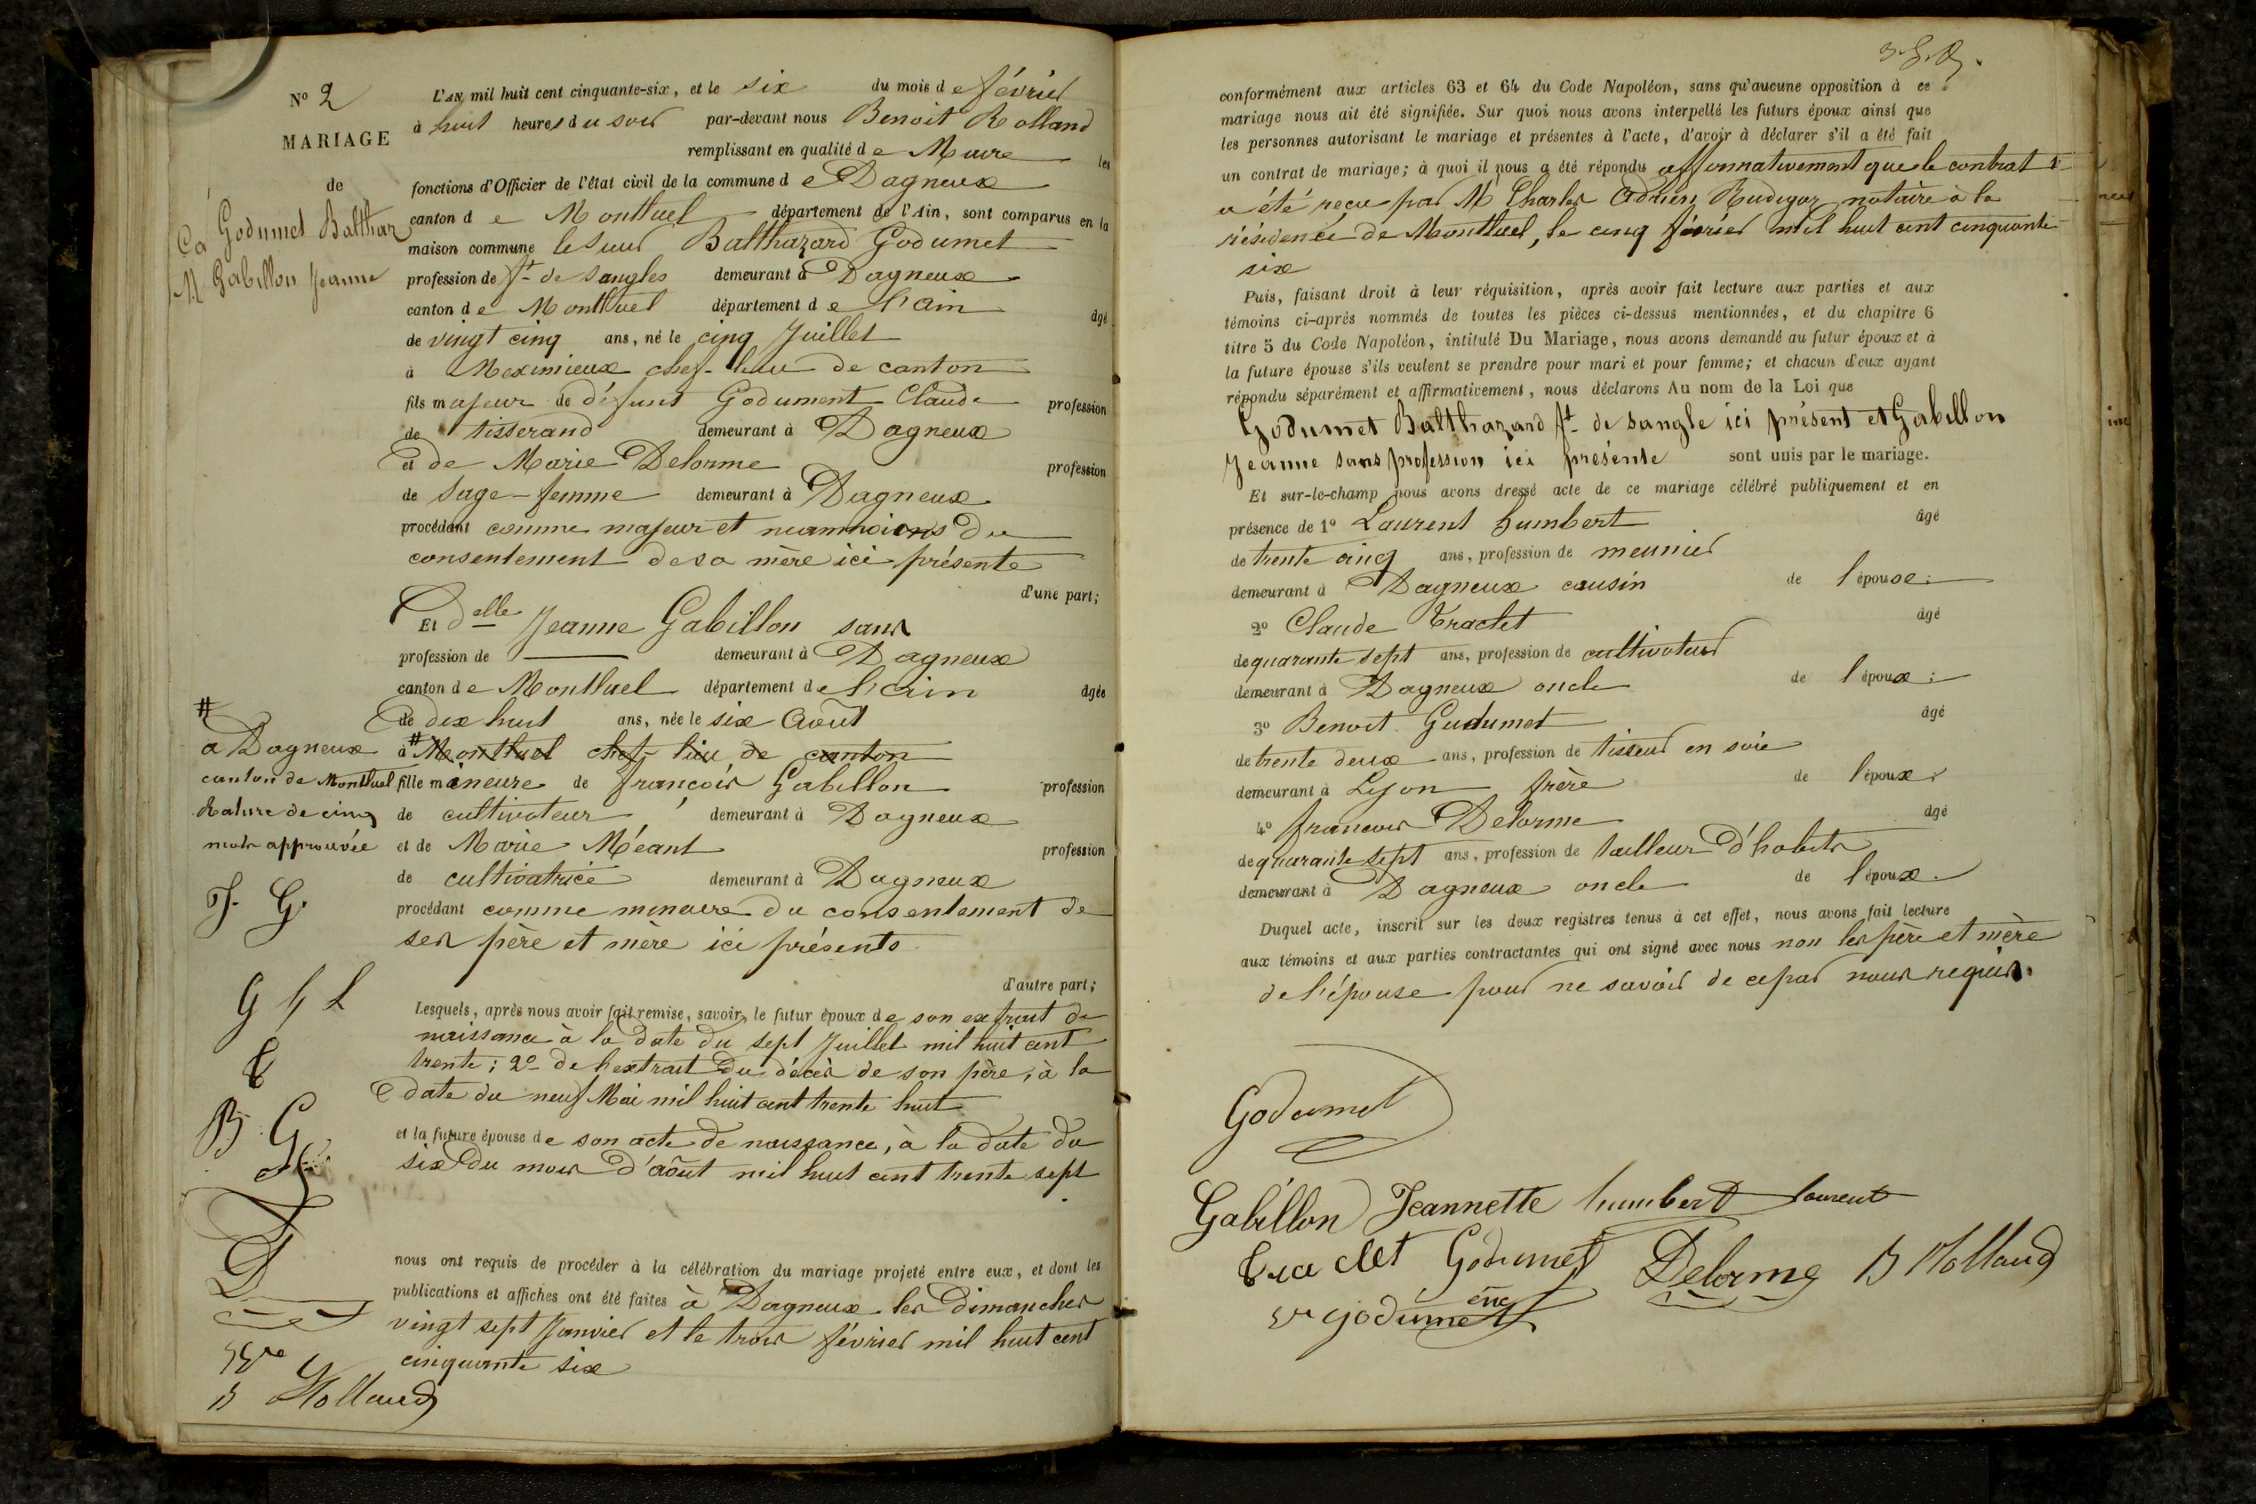 N° 2
MARIAGE
de
Godumet Balthaz
Ca
M Gabillon Jeanne
L'AN mil huit cent cinquante-six, et le six du mois de février
à huit heures du soir par-devant nous Benoit Rolland
remplissant en qualité de Maire les
fonctions d'Officier de l'état civil de la commune de Dagneux
canton de Montluel département de l'Ain, sont comparus en la
maison commune le sieur Balthazard Godumet
profession de ft de sangles demeurant à Dagneux
canton de Montluel département de l'ain âgé
de vingt cinq ans, né le cinq Juillet
à Meximieux chef-lieu de canton
fils majeur de défunt Godument Claude profession
de tisserand demeurant à Dagneux
et de Marie Delorme profession
de sage-femme demeurant à Dagneux
procédant comme majeur et neammoins du
consentement de sa mère ici présente
d'une part;
Et Delle Jeanne Gabillon sans
profession de — demeurant à Dagneux
canton de Montluel département de l'ain âgée
de dix huit ans, née le six Août
à # Montluel chef-lieu de canton
fille mineure de françois Gabillon profession
de cultivateur demeurant à Dagneux
et de Marie Méant profession
de cultivatrice demeurant à Dagneux
procédant comme mineure du consentement de
ses père et mère ici présents
d'autre part;
Lesquels, après nous avoir fait remise, savoir, le futur époux de son extrait de
naissance à la date du sept Juillet mil huit cent
trente; 2° de l'extrait du décès de son père, à la
date du neuf Mai mil huit cent trente huit
et la future épouse de son acte de naissance, à la date du
six du mois d'août mil huit cent trente sept
nous ont requis de procéder à la célébration du mariage projeté entre eux, et dont les
publications et affiches ont été faites à Dagneux les dimanches
vingt sept Janvier et le trois février mil huit cent
cinquante six
#
a Dagneux
canton de Montluel
Rature de cinq
mots approuvée
J. G.
G h L
B G
D
B Rolland
conformément aux articles 63 et 64 du Code Napoléon, sans qu'aucune opposition à ce
mariage nous ait été signifiée. Sur quoi nous avons interpellé les futurs époux ainsi que
les personnes autorisant le mariage et présentes à l'acte, d'avoir à déclarer s'il a été fait
un contrat de mariage; à quoi il nous a été répondu affirmativement que le contrat
a été reçu par Me Charles Adrien Rudigoz notaire à la
résidence de Montluel, le cinq février mil huit cent cinquante
six
Puis, faisant droit à leur réquisition, après avoir fait lecture aux parties et aux
témoins ci-après nommés de toutes les pièces ci-dessus mentionnées, et du chapitre 6
titre 5 du Code Napoléon, intitulé Du Mariage, nous avons demandé au futur époux et à
la future épouse s'ils veulent se prendre pour mari et pour femme; et chacun d'eux ayant
répondu séparément et affirmativement, nous déclarons Au nom de la Loi que
Godumet Balthazard ft de sangle ici présent et Gabillon
Jeanne sans profession ici présente sont unis par le mariage.
Et sur-le-champ nous avons dressé acte de ce mariage célébré publiquement et en
présence de 1° Laurent humbert âgé
de trente cinq ans, profession de meunier
demeurant à Dagneux cousin de l'épouse;
2° Claude Traclet âgé
de quarante sept ans, profession de cultivateur
demeurant à Dagneux oncle de l'époux;
3° Benoit Gudumet âgé
de trente deux ans, profession de tisseur en soie
demeurant à Lyon frère de l'époux;
4° francois Delorme âgé
de quarante sept ans, profession de tailleur d'habits
demeurant à Dagneux oncle de l'époux.
Duquel acte, inscrit sur les deux registres tenus à cet effet, nous avons fait lecture
aux témoins et aux parties contractantes qui ont signé avec nous non les père et mère
de l'épouse pour ne savoir de ce par nous requis.
Godumet
Gabillon Jeannette humbert laurent
Traclet Godumet Delorme B Rolland
Godumet